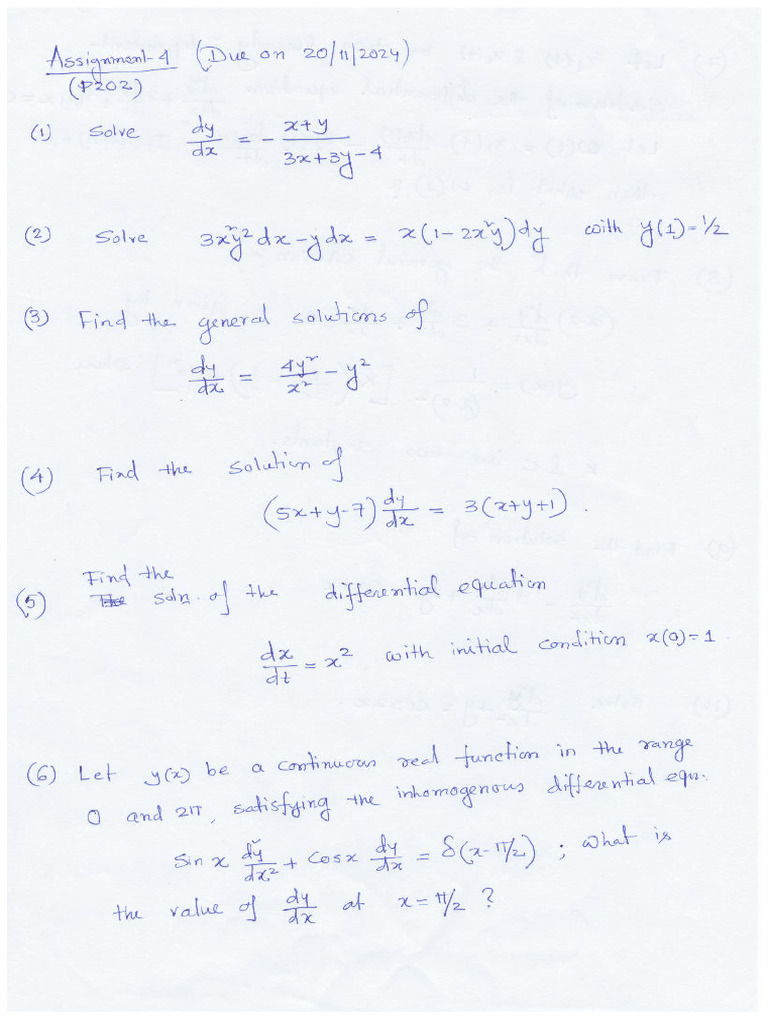 Assignment-4 (Due on 20/11/2024)
(P202)
(1) Solve dy/dx = - (x+y)/(3x+3y-4)
(2) Solve 3x²y² dx - y dx = x(1-2x²y) dy with y(1)=1/2
(3) Find the general solutions of
dy/dx = 4y²/x² - y²
(4) Find the solution of
(5x+y-7) dy/dx = 3(x+y+1).
Find the
(5) soln. of the differential equation
dx/dt = x² with initial condition x(0)=1.
(6) Let y(x) be a continuous real function in the range
0 and 2π, satisfying the inhomogenous differential equ.
Sin x d²y/dx² + Cosx dy/dx = δ(x-π/2) ; What is
the value of dy/dx at x=π/2 ?